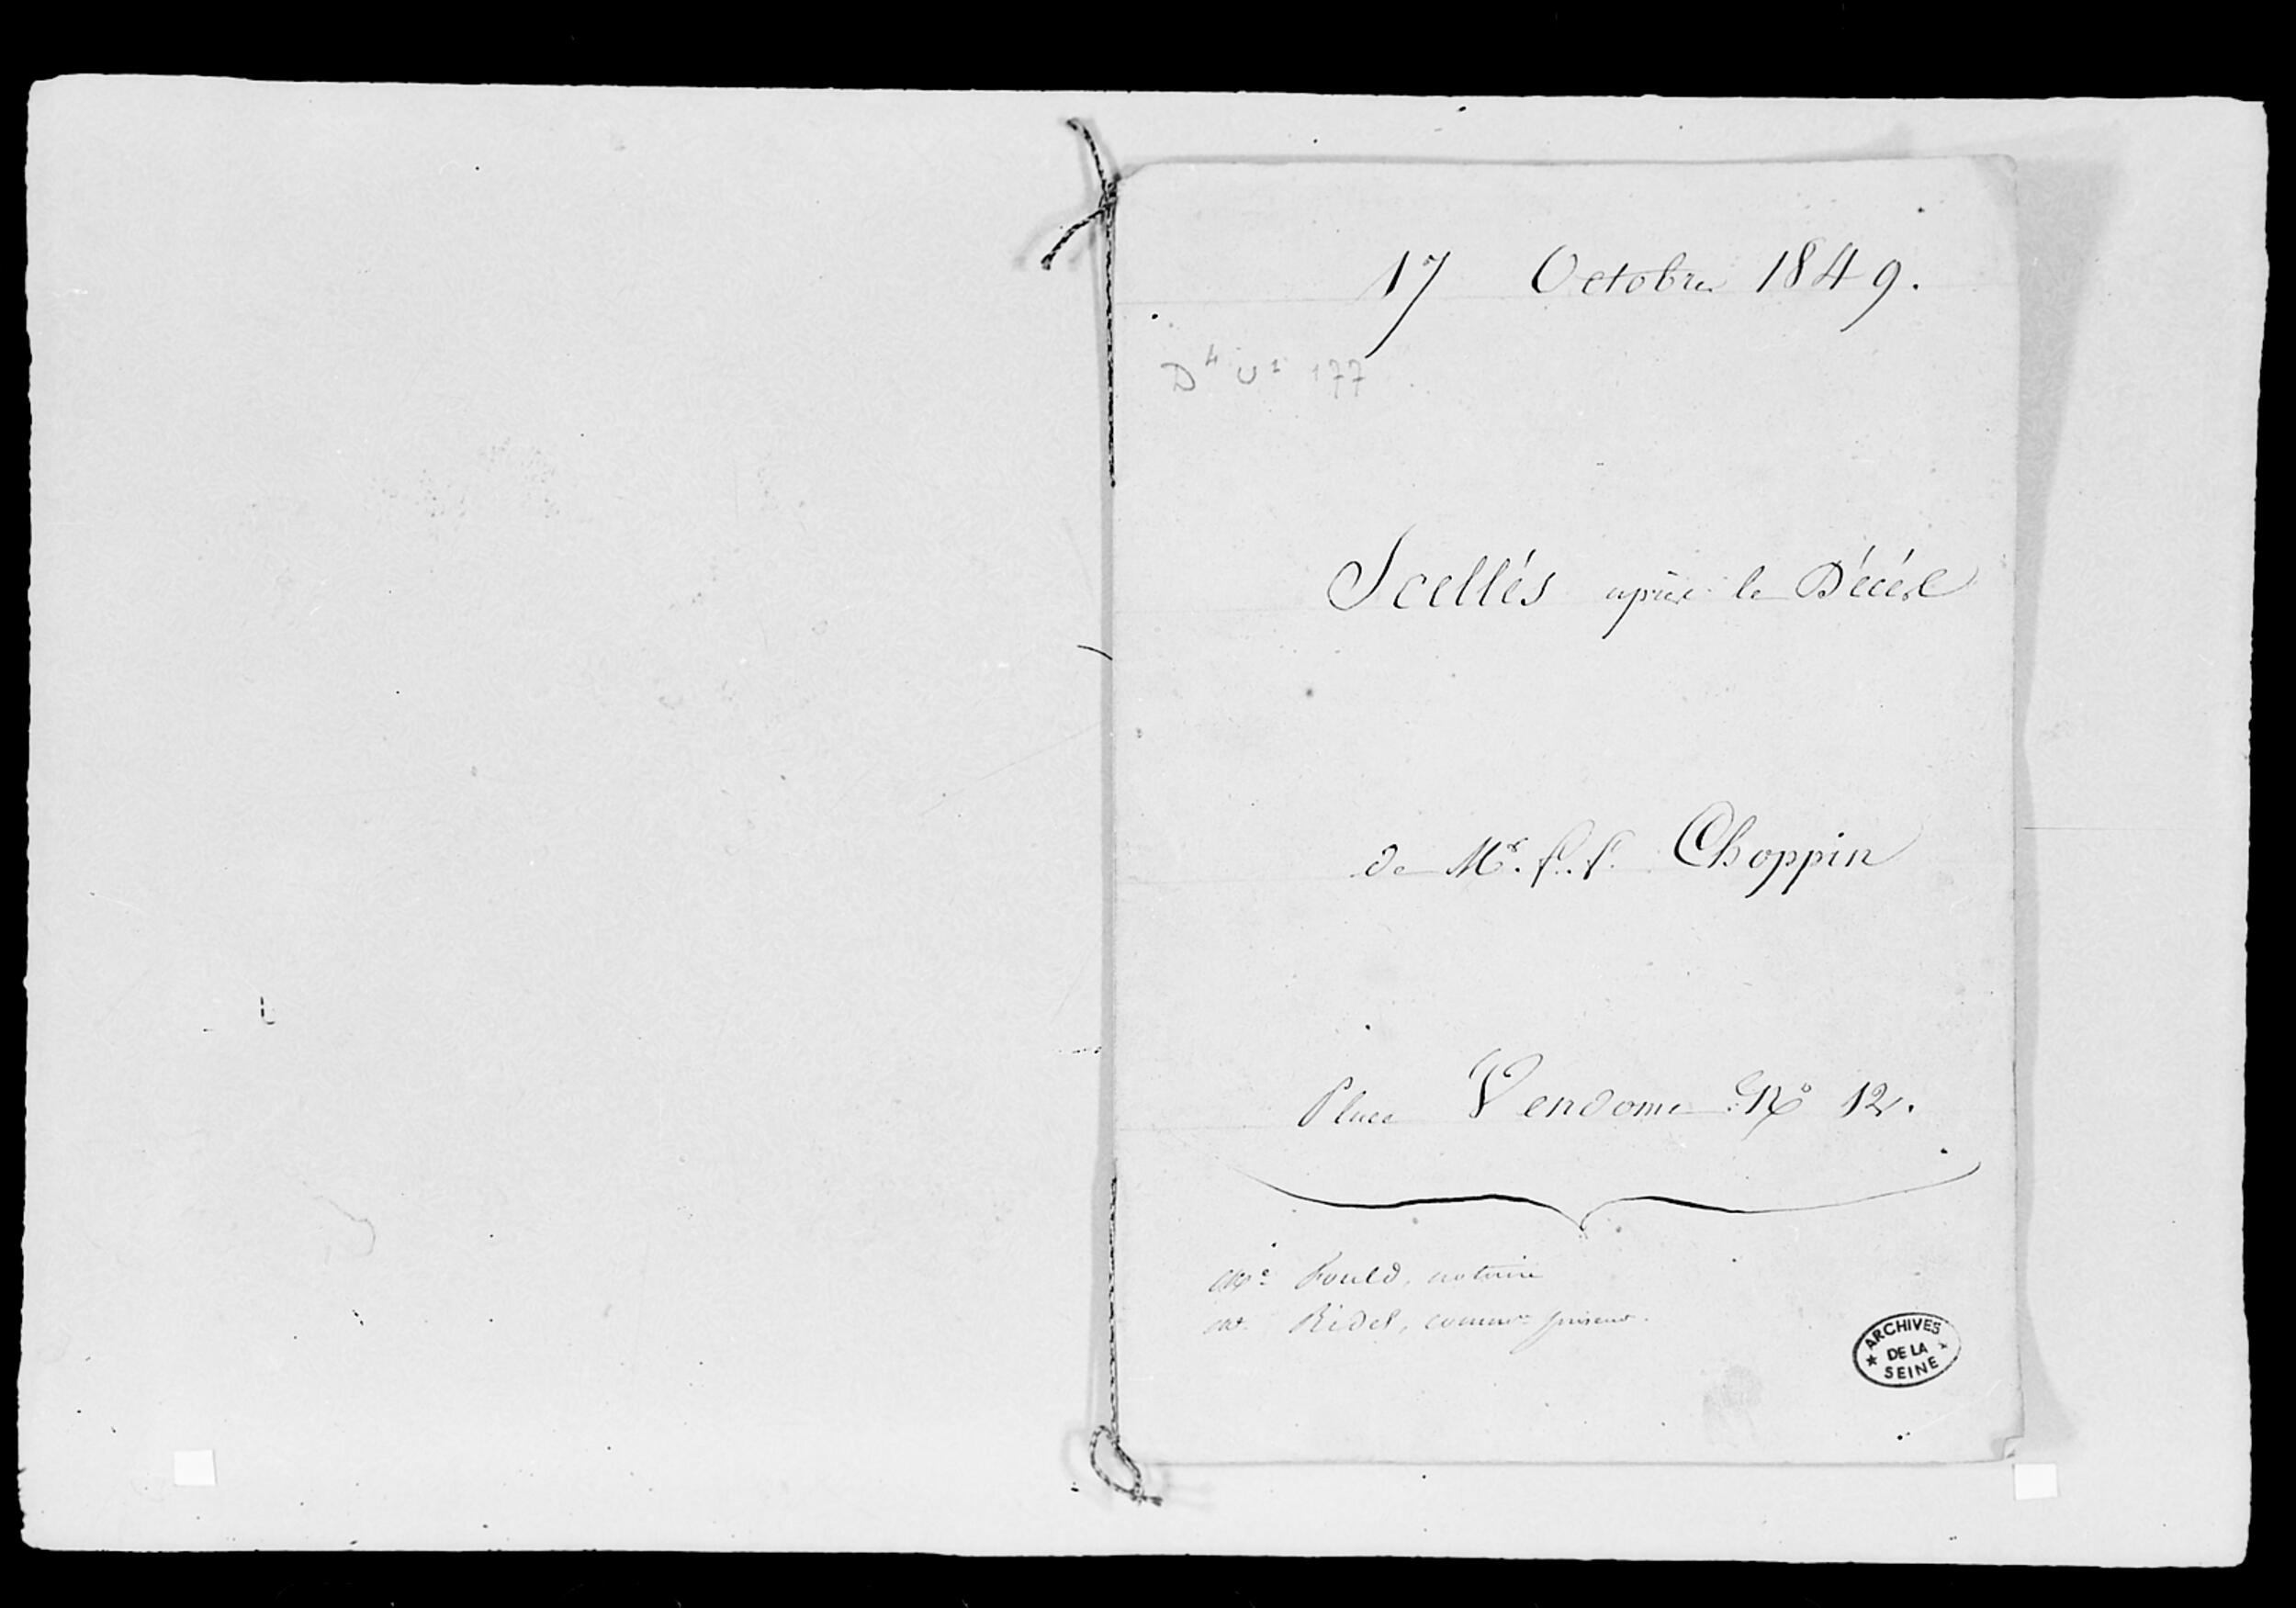 17 Octobre 1849.
D4 U1 177
Scellés après le Décès
de Mr. f. f. Choppin
Place Vendome No 12.
Me Fould, notaire
Me Ridel, commre priseur.
ARCHIVES
DE LA
SEINE